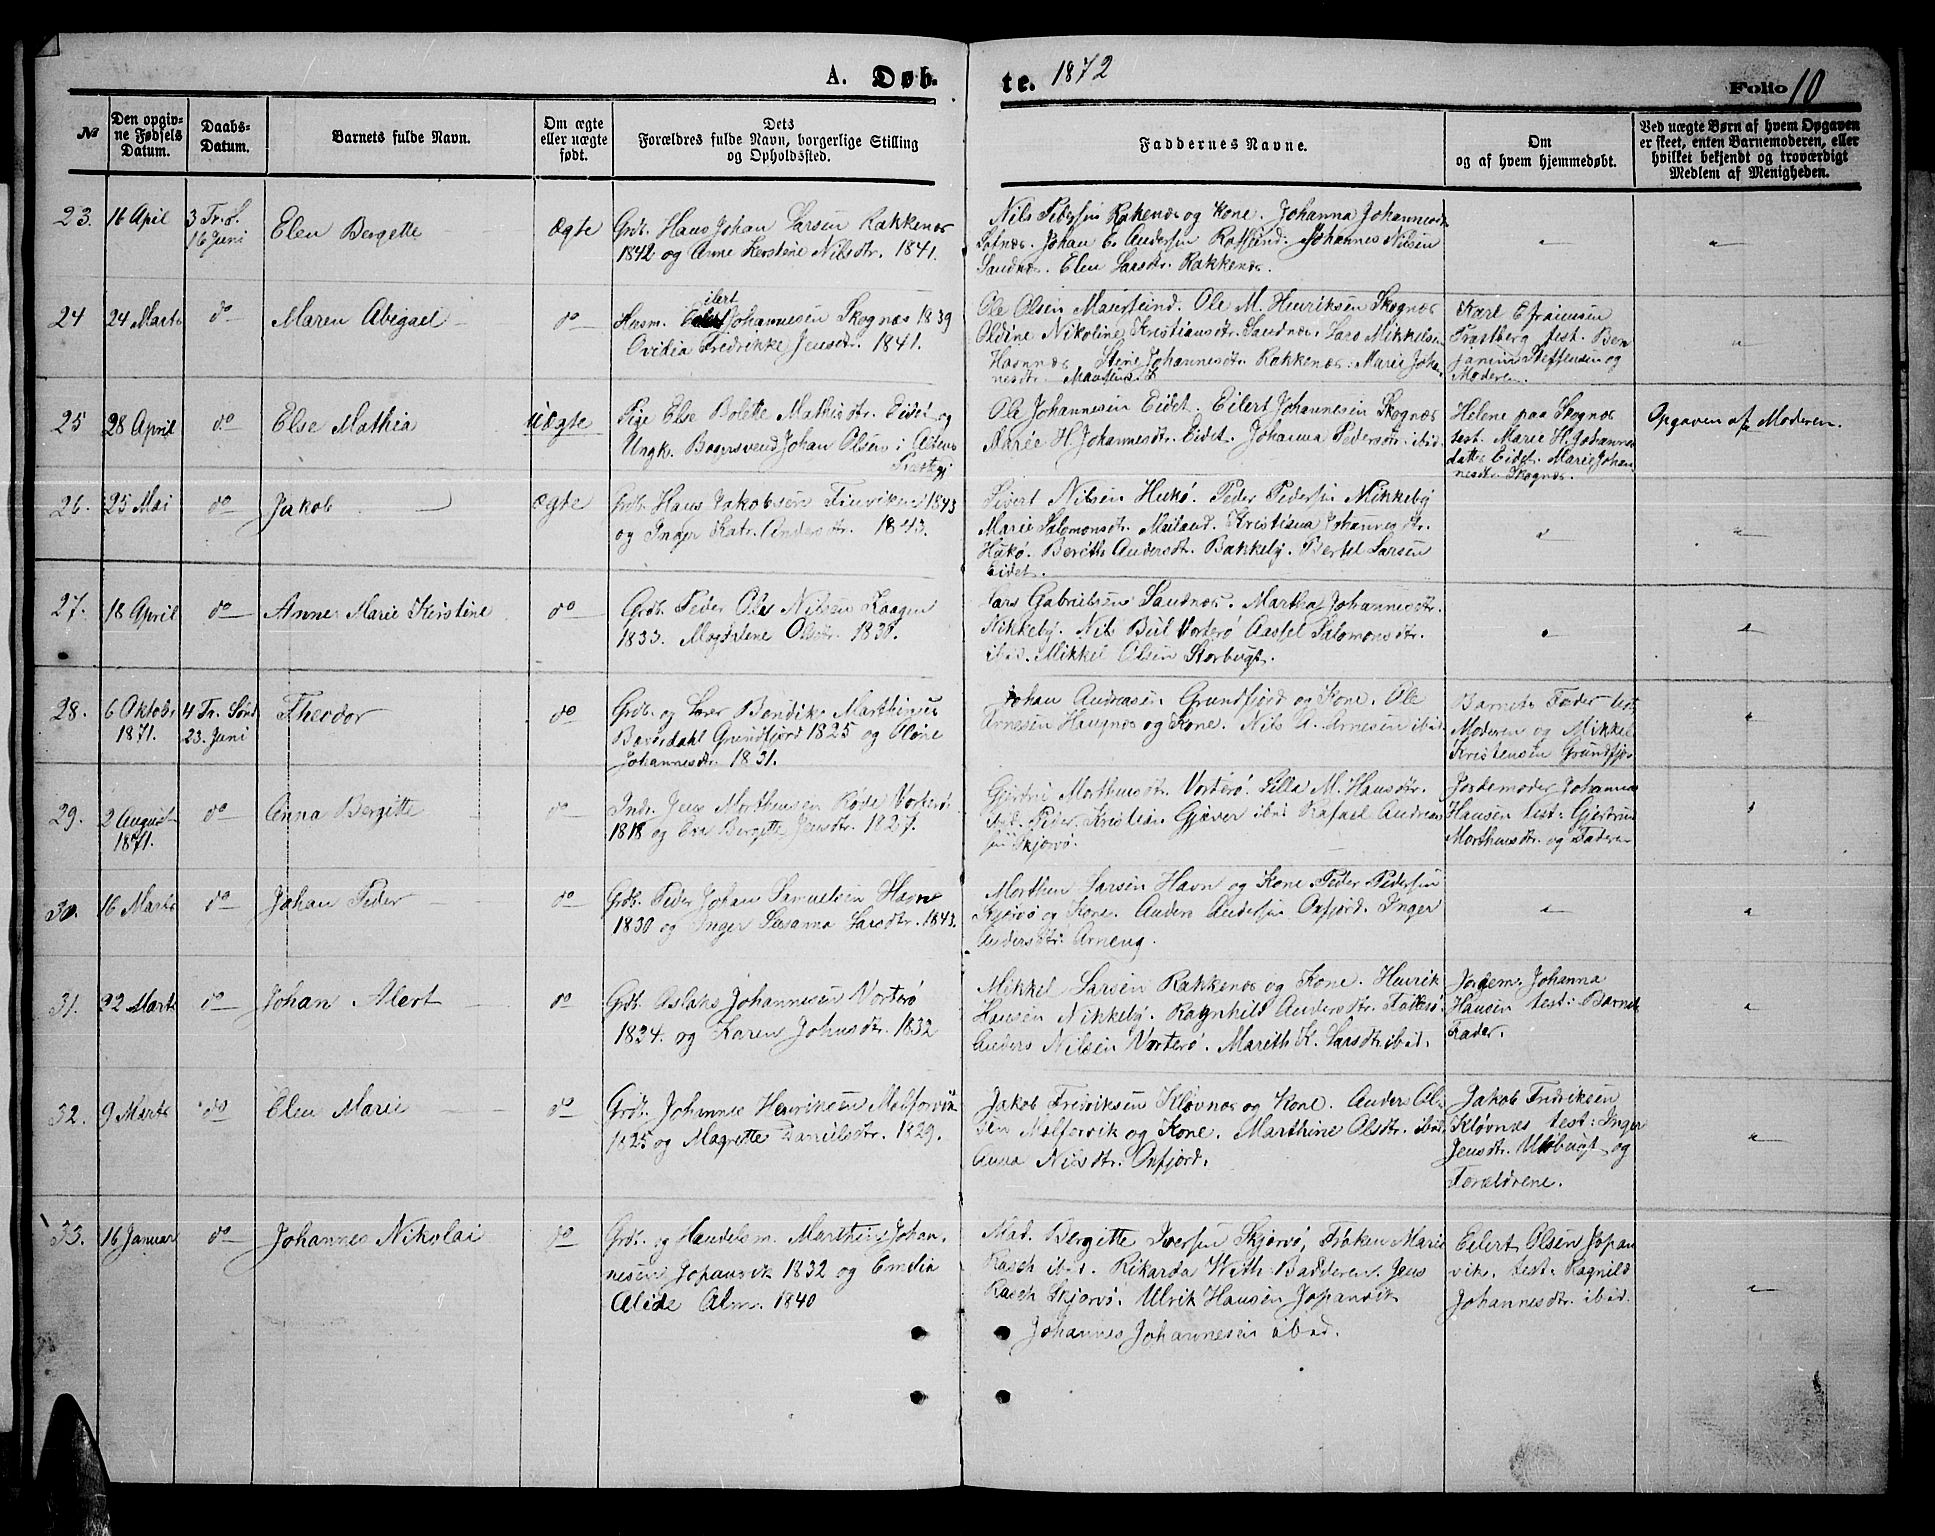 A. Døb-
te. 1872
Folio 10
No
Den opgiv-
ne Fødsels
Datum.
Daabs-
Datum.
Barnets fulde Navn.
Om ægte
eller nægte
født.
Dets
Forældres fulde Navn, borgerlige Stilling
og Opholdsted.
Faddernes Navne.
Om
og af hvem hjemmedøbt.
Ved nægte Børn af hvem Opgaven
er skeet, enten Barnemoderen, eller
hvilket bekjendt og troværdigt
Medlem af Menigheden.
23.
16 April
3 Tr. S.
16 Juni
Elen Bergette
Ægte
Grdb. Hans Johan Larsen Rakkenæs
1842 og Anne Kerstine Nilsdtr. 1841.
Nils Pedersen Rakenæs og Kone. Johanna Johannesdtr.
Johan E. Andersen Johannes Nilsen
Sandnæs. Elen Larsdtr. Rakkenæs.
"
"
24
24 Marts
do
Maren Abigael
do
ilert
Husm. Johannesen Skognæs 1839
Ovidia Fredrikke Jensdtr. 1841.
Ole Olsen Maursund. Ole M. Henriksen Skognæs
Oldine Nikoline Kristiansdtr. Sandnæs. Lars Mikkelsen
Havnnæs Stine Johannesdtr. Rakkenæs. Marie Johan
nesdtr. Maursund
Karl Efraimsen
Trostberg test. Ben
jamin Steffensen og
Moderen.
"
25
28 April
do
Else Mathia
Uægte
Pige Else Bolette Mathisdtr. Eidet og
Ungk. Johan Olsen i Altens
Prestegj
Ole Johannesen Eidet. Eilert Johannesen Skognæs
Marie H. Johannesdtr. Eidet. Johanna Pedersdtr. ibid
Helene paa Skognæs
test. Marie H. Johannes
datter Eidet. Marie Johan
nesdtr. Skognæs.
Opgaven af Moderen.
26.
25 Mai
do
Jakob
Ægte
Grdb. Hans Jakobsen 1843
og Inger Katr. Andersdtr. 1843.
Sivert Nilsen Hukø. Peder Pedersen Mikkeby
Marie Salomonsdtr. Meiland. Kristiana Johannesdtr.
Hukø. Berith Andersdtr. Bakkeby. Bertel Larsen
Eidet.
"
"
27.
18 April
do
Anne Marie Kerstine
do
Grdb. Peder Ole Nilsen Kaagen
1833. Magdalene Olsdtr. 1830.
Lars Gabrielsen Sandnæs. Martha Johannesdtr.
Nikkeby. Nils Bul Vorterø Salomonsdtr.
ibid. Mikkel Olsen Storbugt.
"
"
28.
6 Oktobr
1871.
4 Tr. Sønd
23. Juni
Theodor
do
Grdb. og Lærer Bendik Marthinus
Baversdahl Grundfjord 1825 og Oline
Johannesdtr. 1831.
Johan Andreasen Grundfjord og Kone. Ole
Arnesen Haugnæs og Kone. Nils A. Arnesen ibid
Barnets Fader test
Moderen og Mikkel
Kristensen Grundfjor
"
29.
2 August
1871.
do
Anna Bergitte
do
Indr. Jens Morthensen Røde Vorterø
1818 og Ere Bergitte Jensdtr. 1827.
Gjertrui Morthensdtr. Vorterø. Silla M. Hansdtr.
ibid. Peder Kristian Gjæver ibid Rafael Andrea
sen Skjervø.
Jordemoder Johanna
Hansen test: Gjertrui
Morthensdtr. og Faderen
"
30.
16 Marts
do
Johan Peder
do
Grdb. Peder Johan Samuelsen Havn
1830 og Inger Susanna Larsdtr. 1843.
Morthen Larsen Havn og Kone. Peder Pedersen
Skjervø og Kone. Anders Andersen Oxfjord. Inger
Andersdtr. Arneng.
"
"
31.
22 Marts
do
Johan Alert
do
Grdb. Aslak Johannesen Vorterø
1824. og Karen Johnsdtr. 1832
Mikkel Larsen Rakkenæs og Kone. Henrik
Hansen Nikkeby. Ragnhild Andersdtr.
Anders Nilsen Vorterø. Marith K. Larsdtr. ibid.
Jordem. Johanna
Hansen test: Barnets
Fader.
"
32.
9 Marts
do
Elen Marie
do
Grdb. Johannes Henriksen Malforvik
1825 og Magrette Danielsdtr. 1829.
Jakob Fredriksen Kløvnæs og Kone. Anders Ol
sen Malforvik og Kone. Marthine Olsdtr. ibid
Anna Nilsdtr. Oxfjord.
Jakob Fredriksen
Kløvnæs test: Inger
Jensdtr. og
Forældrene.
"
33.
16 Januar
do
Johannes Nikolai
do
Grdb. og Handelsm. Marthin Johan
nesen Jopanvik 1832 og Emelia
Alide Alm. 1840
Mad. Bergitte Iversen Skjervø, Frøken Marie
Rasch ibid. Rikarda With Badderen. Jens
Rasch Skjervø. Ulrik Hansen Jopanvik
Johannes Johannesen ibid.
Eilert Olsen Jopan
vik. test: Ragnild
Johannesdtr. ibid.
"